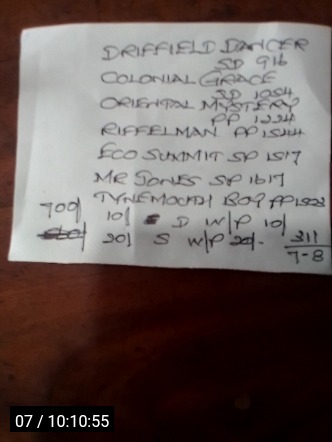 DRIFFIELD DANCER
SD 916
COLONIAL GRACE
SD 1054
ORIENTAL MYSTERY
PP 1224
RIFFELMAN PP 1544
ECO SUMMIT SP 1517
MR JONES SP 1617
TYNEMOUTH BOY PP
700/ 10/ D W/P 10/
20/ S W/P 20/- 311
7-8
07 / 10:10:55